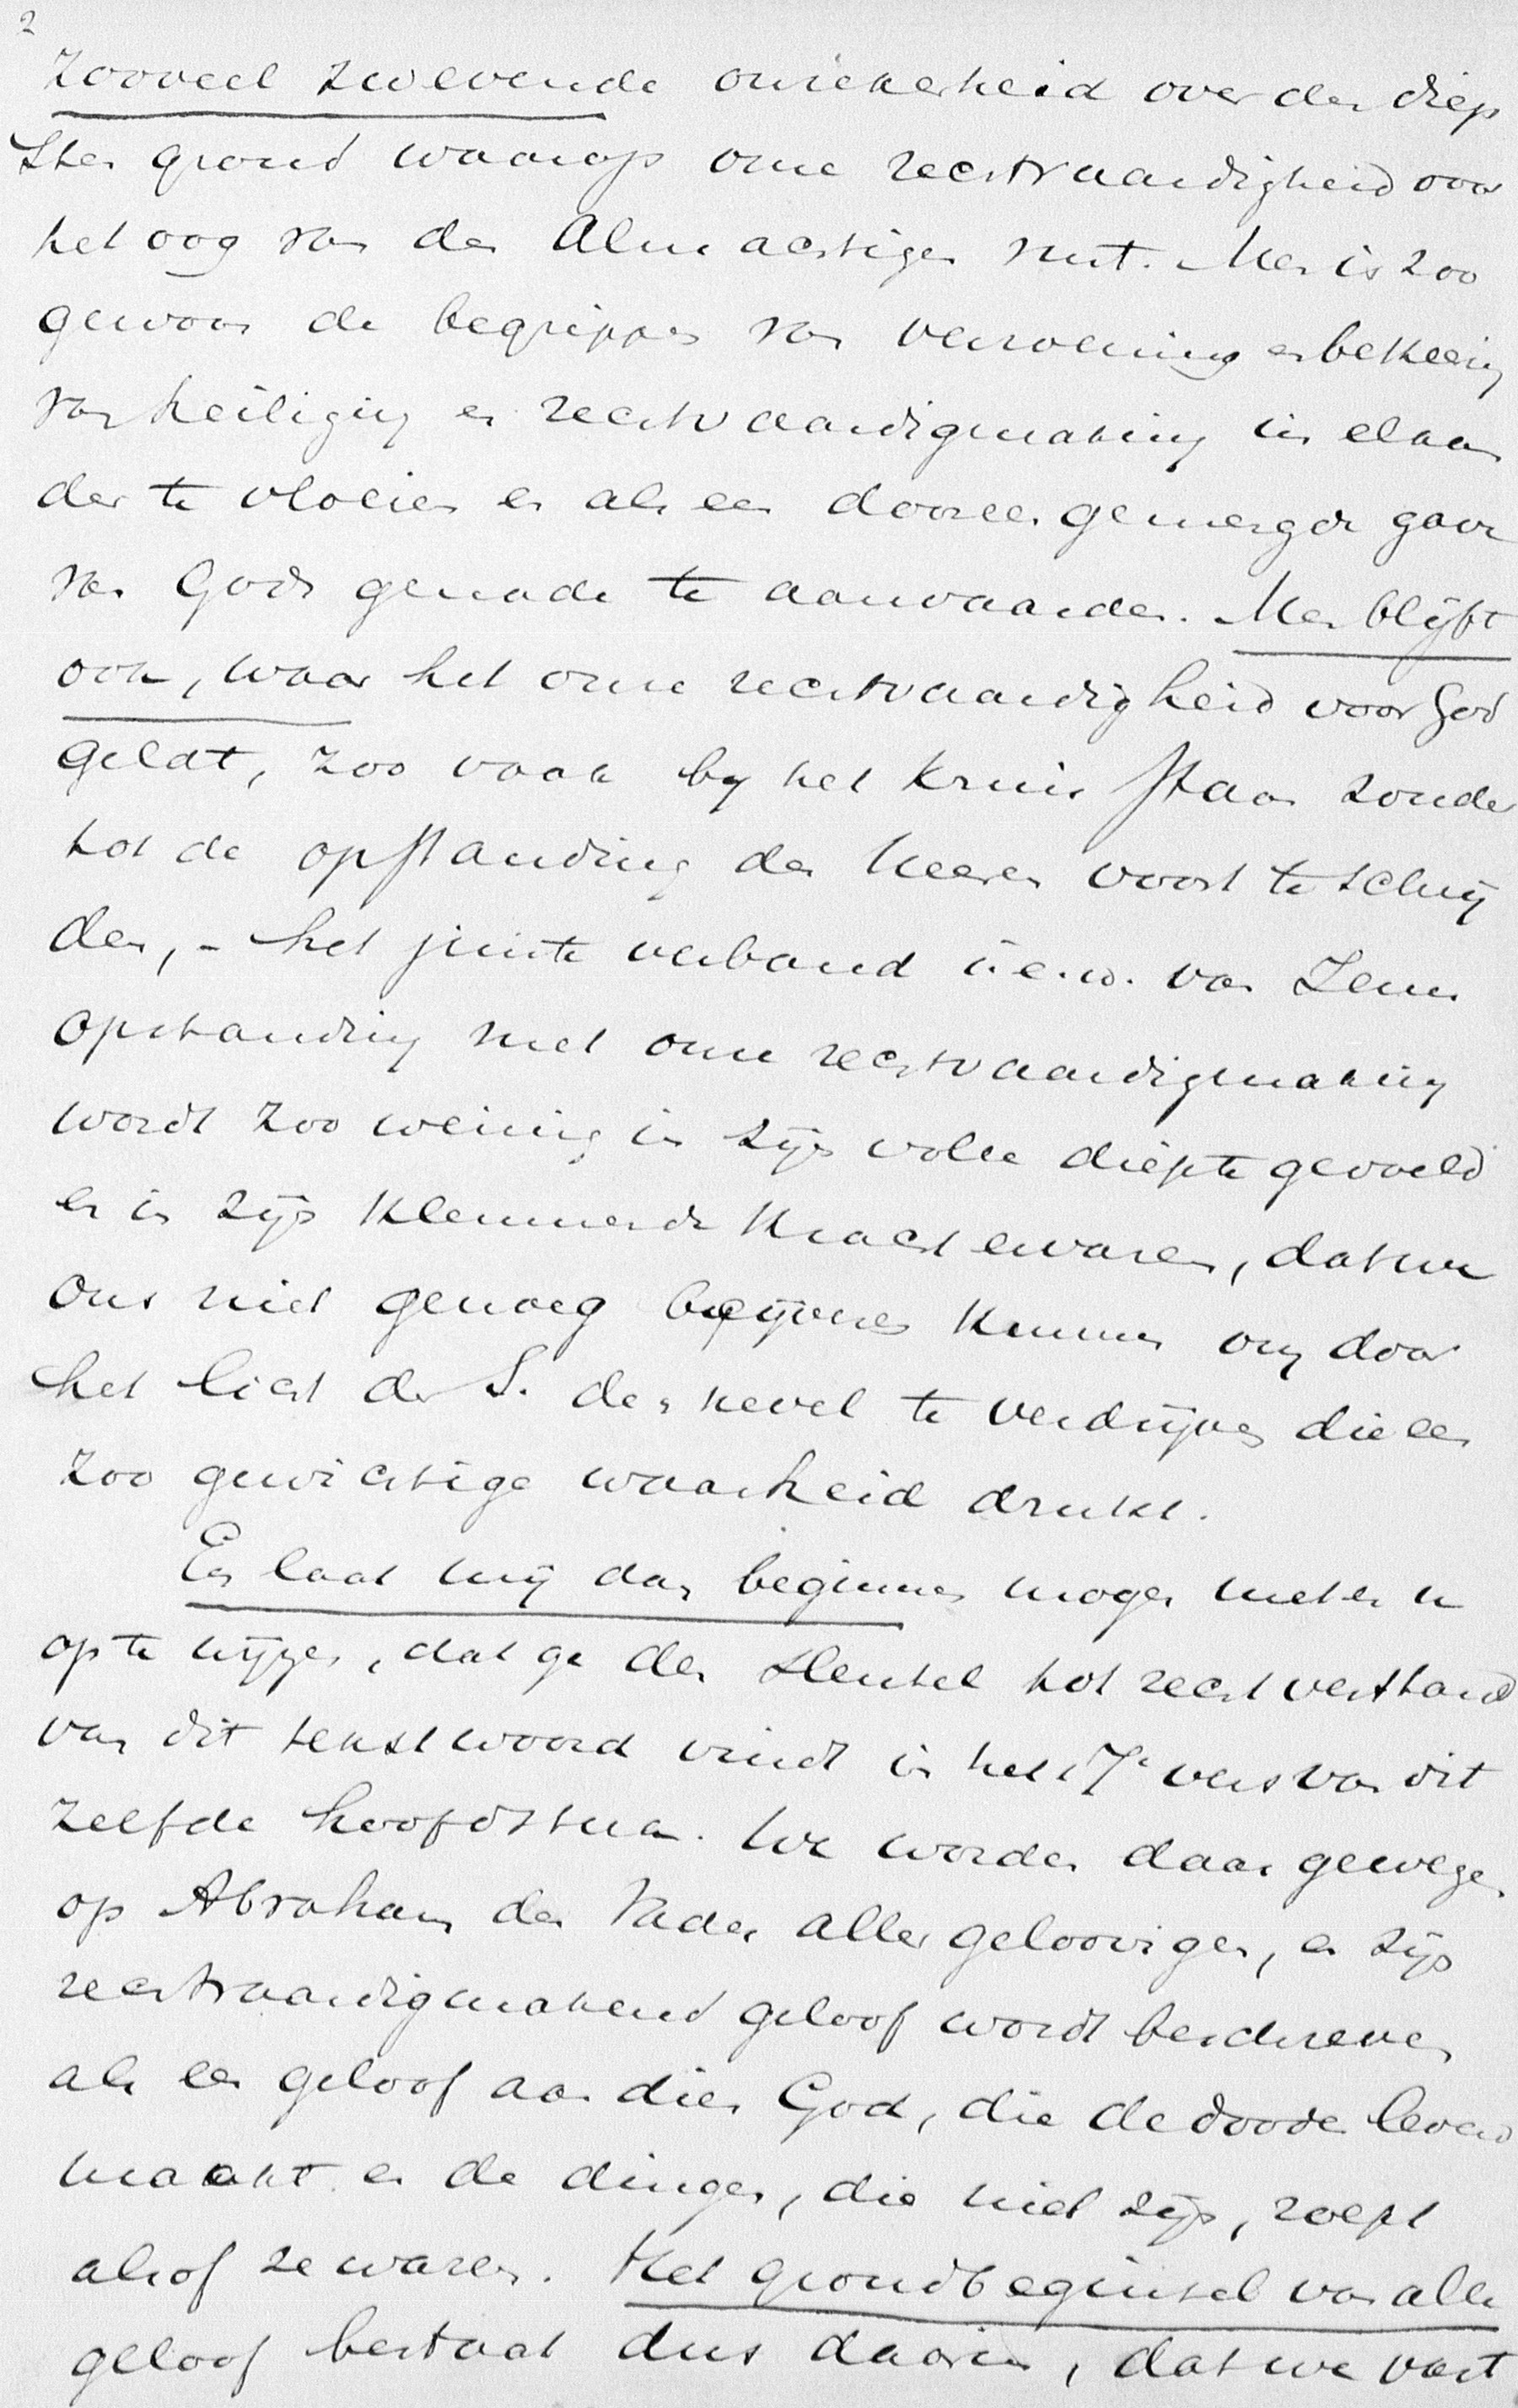 2
Zooveel zwevende onzekerheid over den diep
sten grond waarop onze rechtvaardigheid voor
het oog van den Almachtigen rust. Men is zoo
gewoon de begrippen van verzoening en bekeering
van heiliging en rechtvaardigmaking in elkan
der te vloeien en als een dooreen gemengde gave
van Gods genade te aanvaarden. Men blijft
ook, waar het onze rechtvaardigheid voor God
geldt, zoo vaak bij het kruis staan zonder
tot de opstanding des Heeren voort te schrij
den, - het juiste verband i.e.w. van Jezus
opstanding met onze rechtvaardigmaking
wordt zoo weinig in zijn volle diepte gevoeld
en in zijn klemmende kracht ervaren, dat we
ons niet genoeg beijveren kunnen om door
het licht der S. den nevel te verdrijven die een
zoo gewichtige waarheid drukt.
En laat mij dan beginnen mogen met er u
op te wijzen, dat ge den sleutel tot recht verstand
van dit tekstwoord vindt in het 17e vers van dit
zelfde hoofdstuk. We worden daar gewezen
op Abraham den Vader aller geloovigen, en zijn
rechtvaardigmakend geloof wordt beschreven
als een geloof aan dien God, die de dooden levend
maakt en de dingen, die niet zijn, roept
alsof ze waren. Het grondbeginsel van alle
geloof bestaat dus daarin, dat we vast